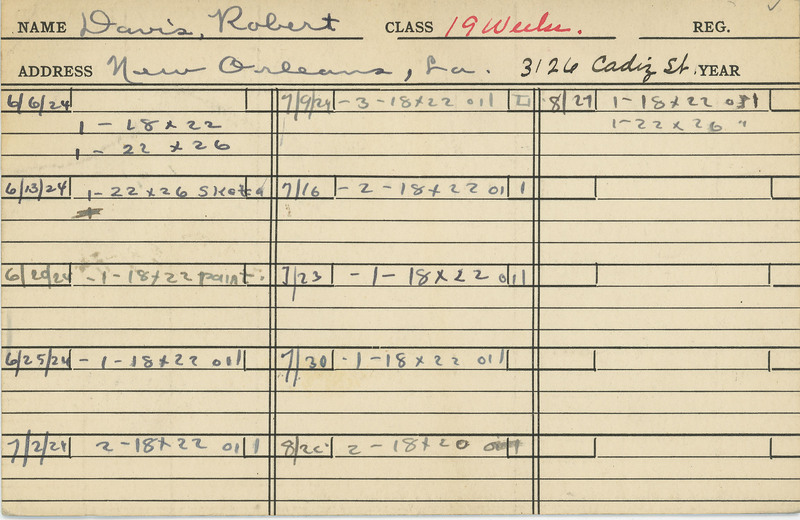 NAME Davis, Robert CLASS 19 Weeks. REG.
ADDRESS New Orleans, La. 3126 Cadiz St. YEAR
6/6/24
1 - 18 x 22
1 - 22 x 26
6/13/24 1 - 22 x 26 Sketch
6/20/24 - 1 - 18 x 22 paint.
6/25/24 - 1 - 18 x 22 oil
7/2/24 2 - 18 x 22 oil
7/9/24 - 3 - 18 x 22 oil
7/16 - 2 - 18 x 22 oil
7/23 - 1 - 18 x 22 oil
7/30 - 1 - 18 x 22 oil
2 - 18 x 20
8/27 1 - 18 x 22 oil
1 - 22 x 26 "